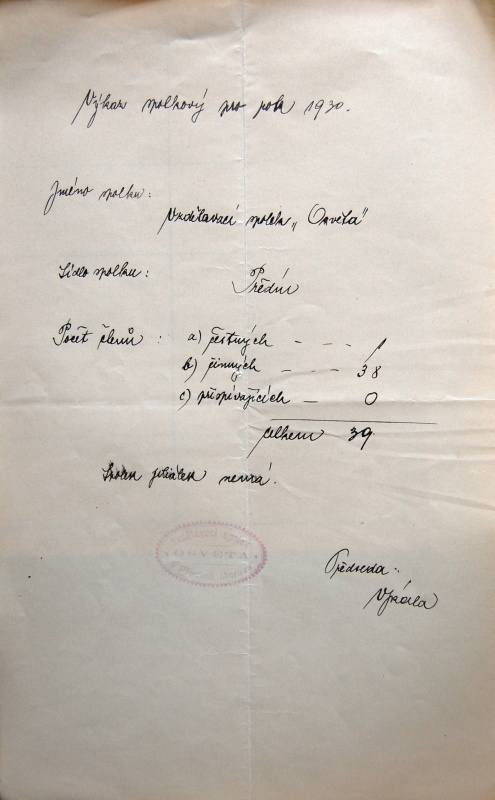 Výkaz spolkový pro rok 1930.
Jméno spolku:
Vzdělavací spolek „Osvěta"
Sídlo spolku:
Předín
Počet členů : a) čestných - - - 1
b) činných - - - 38
c) přispívajících - 0
celkem 39
Spolek filiálek nemá.
OSVĚTA
Předseda: